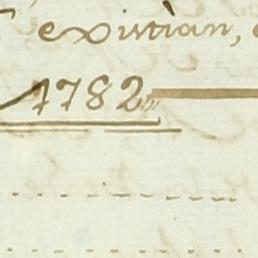 existian,
1782